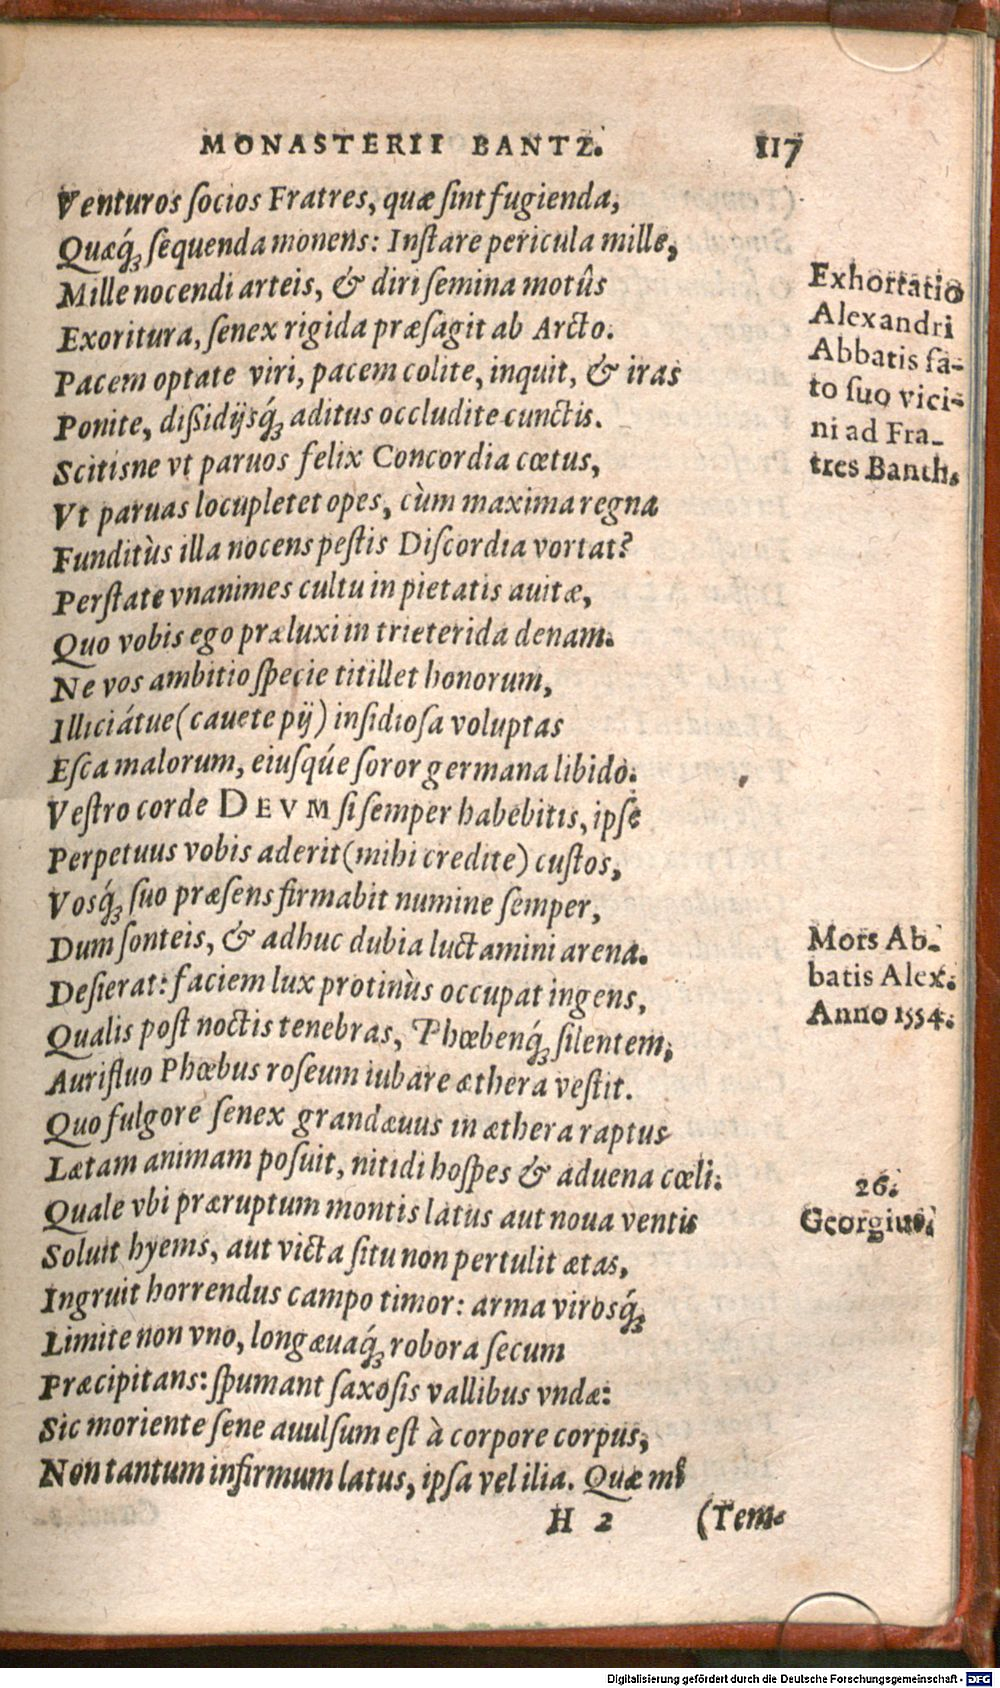 MONASTERII BANTZ. 117
Venturos ſocios Fratres, quæ ſint fugienda,
Quæq́ꝫ ſequenda monens: Inſtare pericula mille,
Mille nocendi arteis, & diri ſemina motûs
Exoritura, ſenex rigida præſagit ab Arcto.
Pacem optate viri, pacem colite, inquit, & iras
Ponite, diſſidijsq́ꝫ aditus occludite cunctis.
Scitisne vt paruos felix Concordia cœtus,
Vt paruas locupletet opes, cùm maxima regna
Funditùs illa nocens peſtis Diſcordia vortat?
Perſtate vnanimes cultu in pietatis auitæ,
Quo vobis ego præluxi in trieterida denam.
Ne vos ambitio ſpecie titillet honorum,
Illiciátue (cauete pij) inſidioſa voluptas
Eſca malorum, eiuſqúe ſoror germana libido.
Veſtro corde DEVM ſi ſemper habebitis, ipſe
Perpetuus vobis aderit (mihi credite) cuſtos,
Vosq́ꝫ ſuo præſens firmabit numine ſemper,
Dum ſonteis, & adhuc dubia luctamini arena.
Deſierat: faciem lux protinùs occupat ingens,
Qualis poſt noctis tenebras, Phœbenq́ꝫ ſilentem,
Aurifluo Phœbus roſeum iubare æthera veſtit.
Quo fulgore ſenex grandæuus in æthera raptus
Lætam animam poſuit, nitidi hoſpes & aduena cœli.
Quale vbi præruptum montis latus aut noua ventis
Soluit hyems, aut victa ſitu non pertulit ætas,
Ingruit horrendus campo timor: arma virosq́ꝫ
Limite non vno, longæuaq́ꝫ robora ſecum
Præcipitans: ſpumant ſaxoſis vallibus vndæ:
Sic moriente ſene auulſum eſt à corpore corpus,
Non tantum infirmum latus, ipſa vel ilia. Quæ mî
H 2 (Tem-
Exhortatio
Alexandri
Abbatis fa-
to ſuo vici-
ni ad Fra-
tres Banth.
Mors Ab-
batis Alex.
Anno 1554.
26.
Georgius.
Digitalisierung gefördert durch die Deutsche Forschungsgemeinschaft - DFG